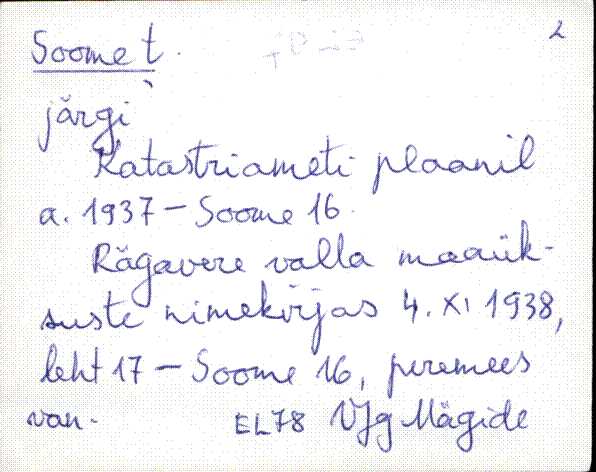 Soome t. 2
järgi
Katastriameti plaanil
a. 1937 – Soome 16.
Rägavere valla maaük-
suste nimekirjas 4. XI 1938,
leht 17 – Soome 16, peremees
van. EL78 VJg Mägide